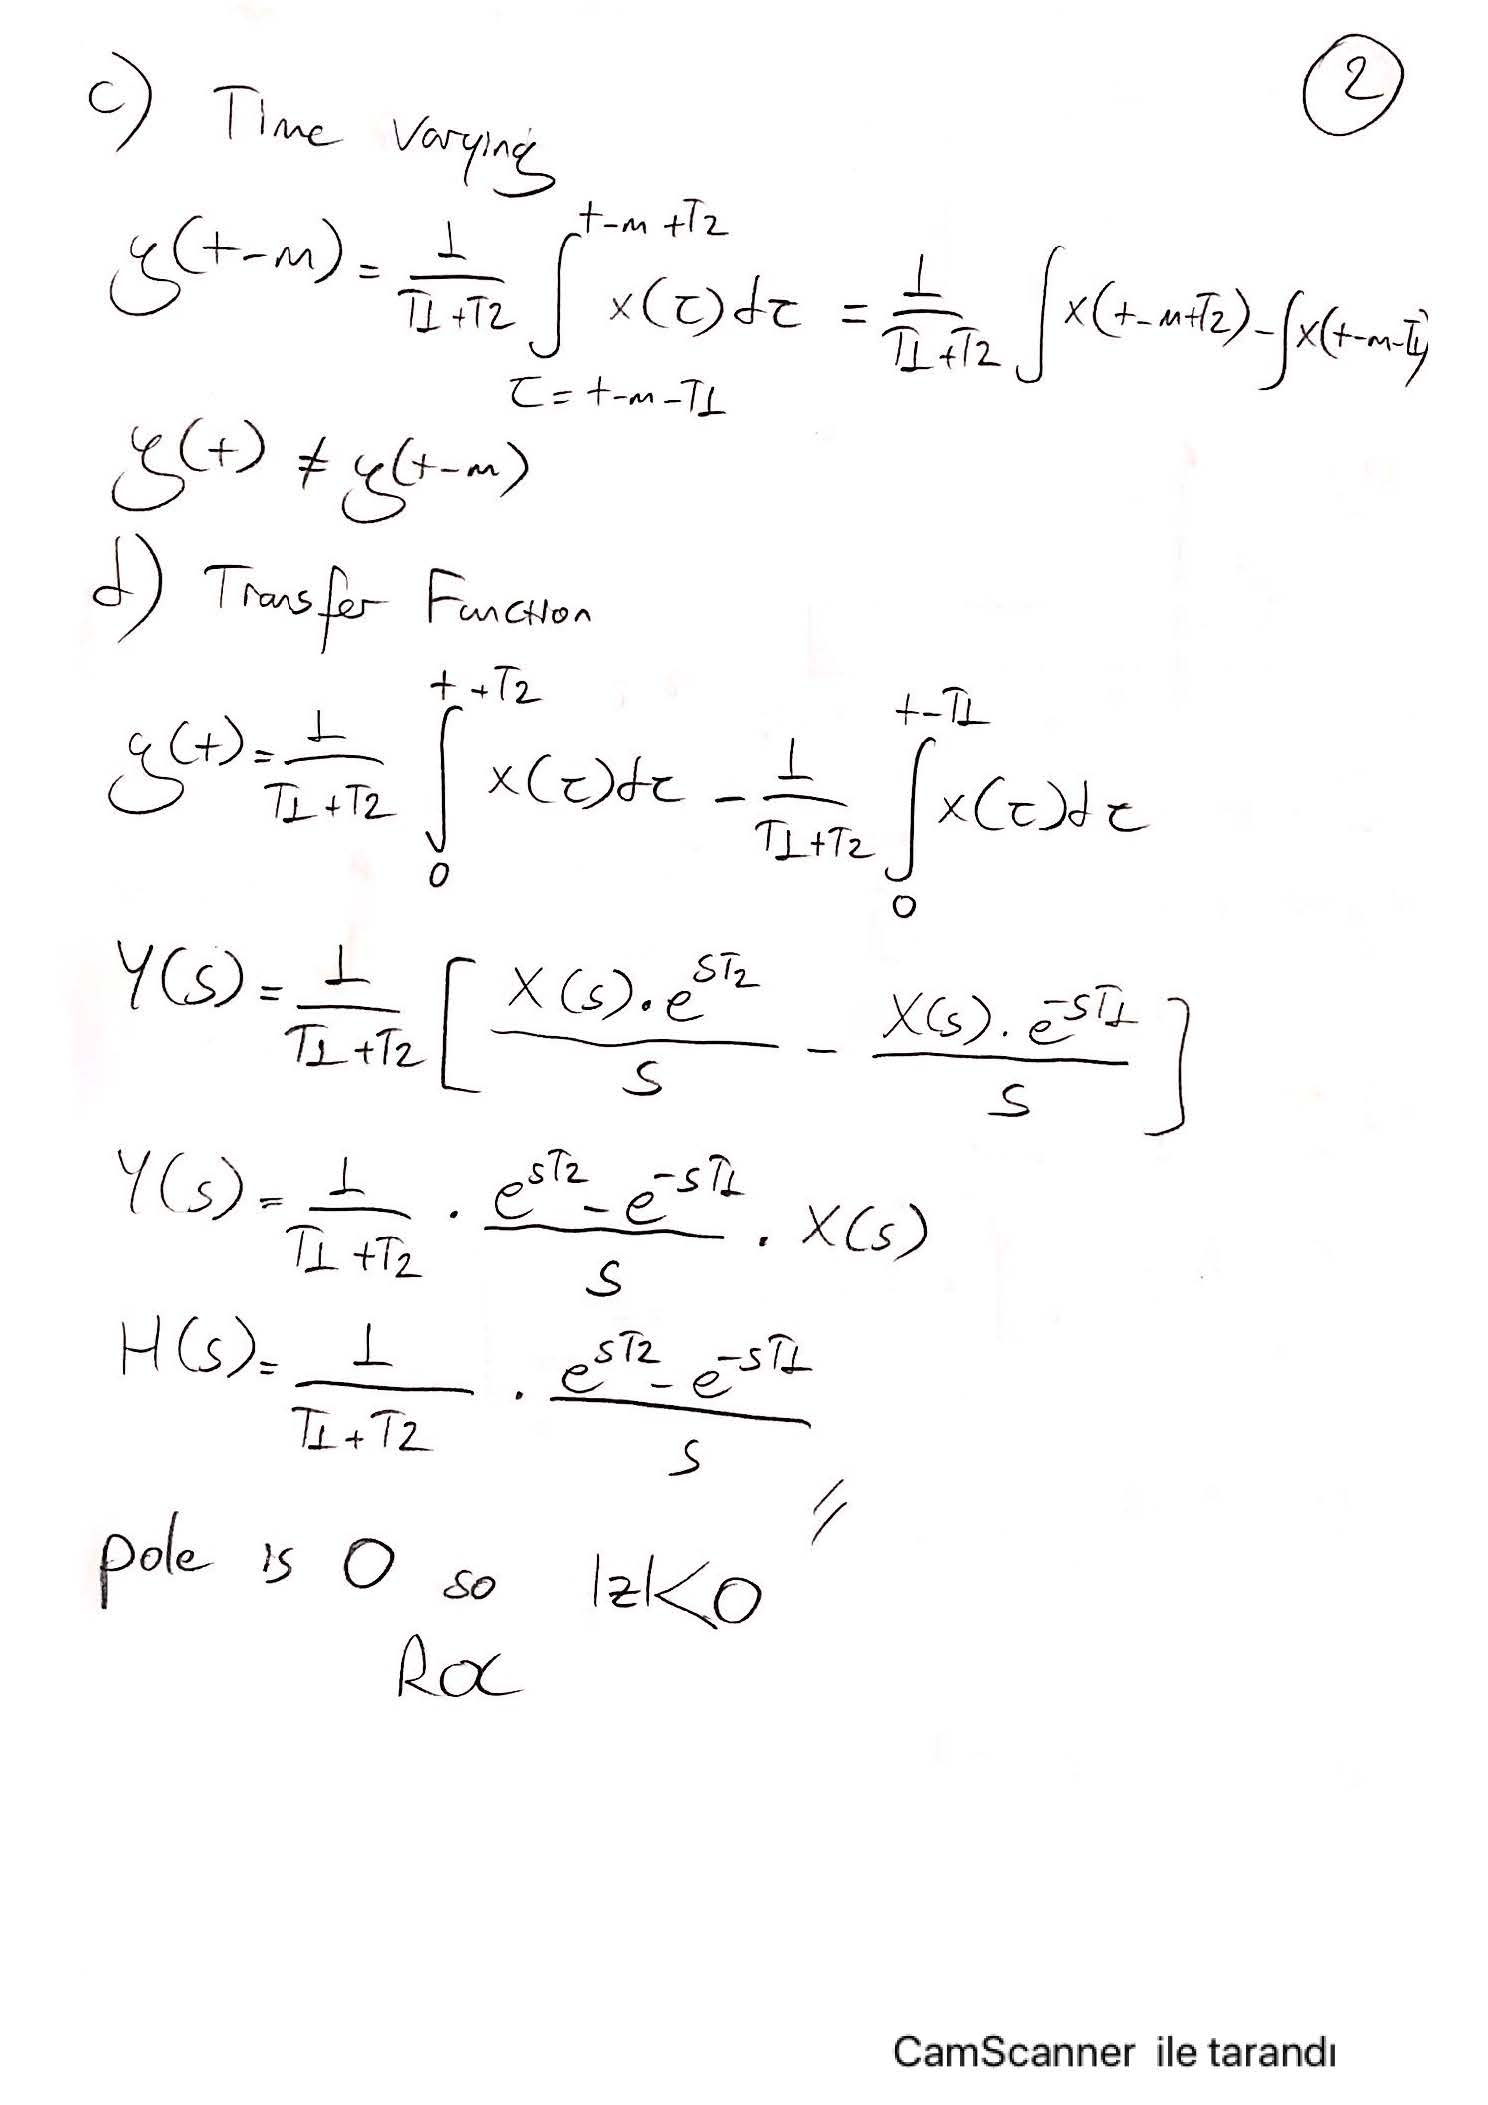 2
c) Time Varying
y(t-m) = 1/(T1+T2) ∫_{τ=t-m-T1}^{t-m+T2} x(τ)dτ = 1/(T1+T2) ∫x(t-m+T2) - ∫x(t-m-T1)
y(t) ≠ y(t-m)
d) Transfer Function
y(t) = 1/(T1+T2) ∫_0^{t+T2} x(τ)dτ - 1/(T1+T2) ∫_0^{t-T1} x(τ)dτ
Y(s) = 1/(T1+T2) [ X(s).e^{sT2}/s - X(s).e^{-sT1}/s ]
Y(s) = 1/(T1+T2) . (e^{sT2} - e^{-sT1})/s . X(s)
H(s) = 1/(T1+T2) . (e^{sT2} - e^{-sT1})/s //
pole is 0 so |z|<0
ROC
CamScanner ile tarandı